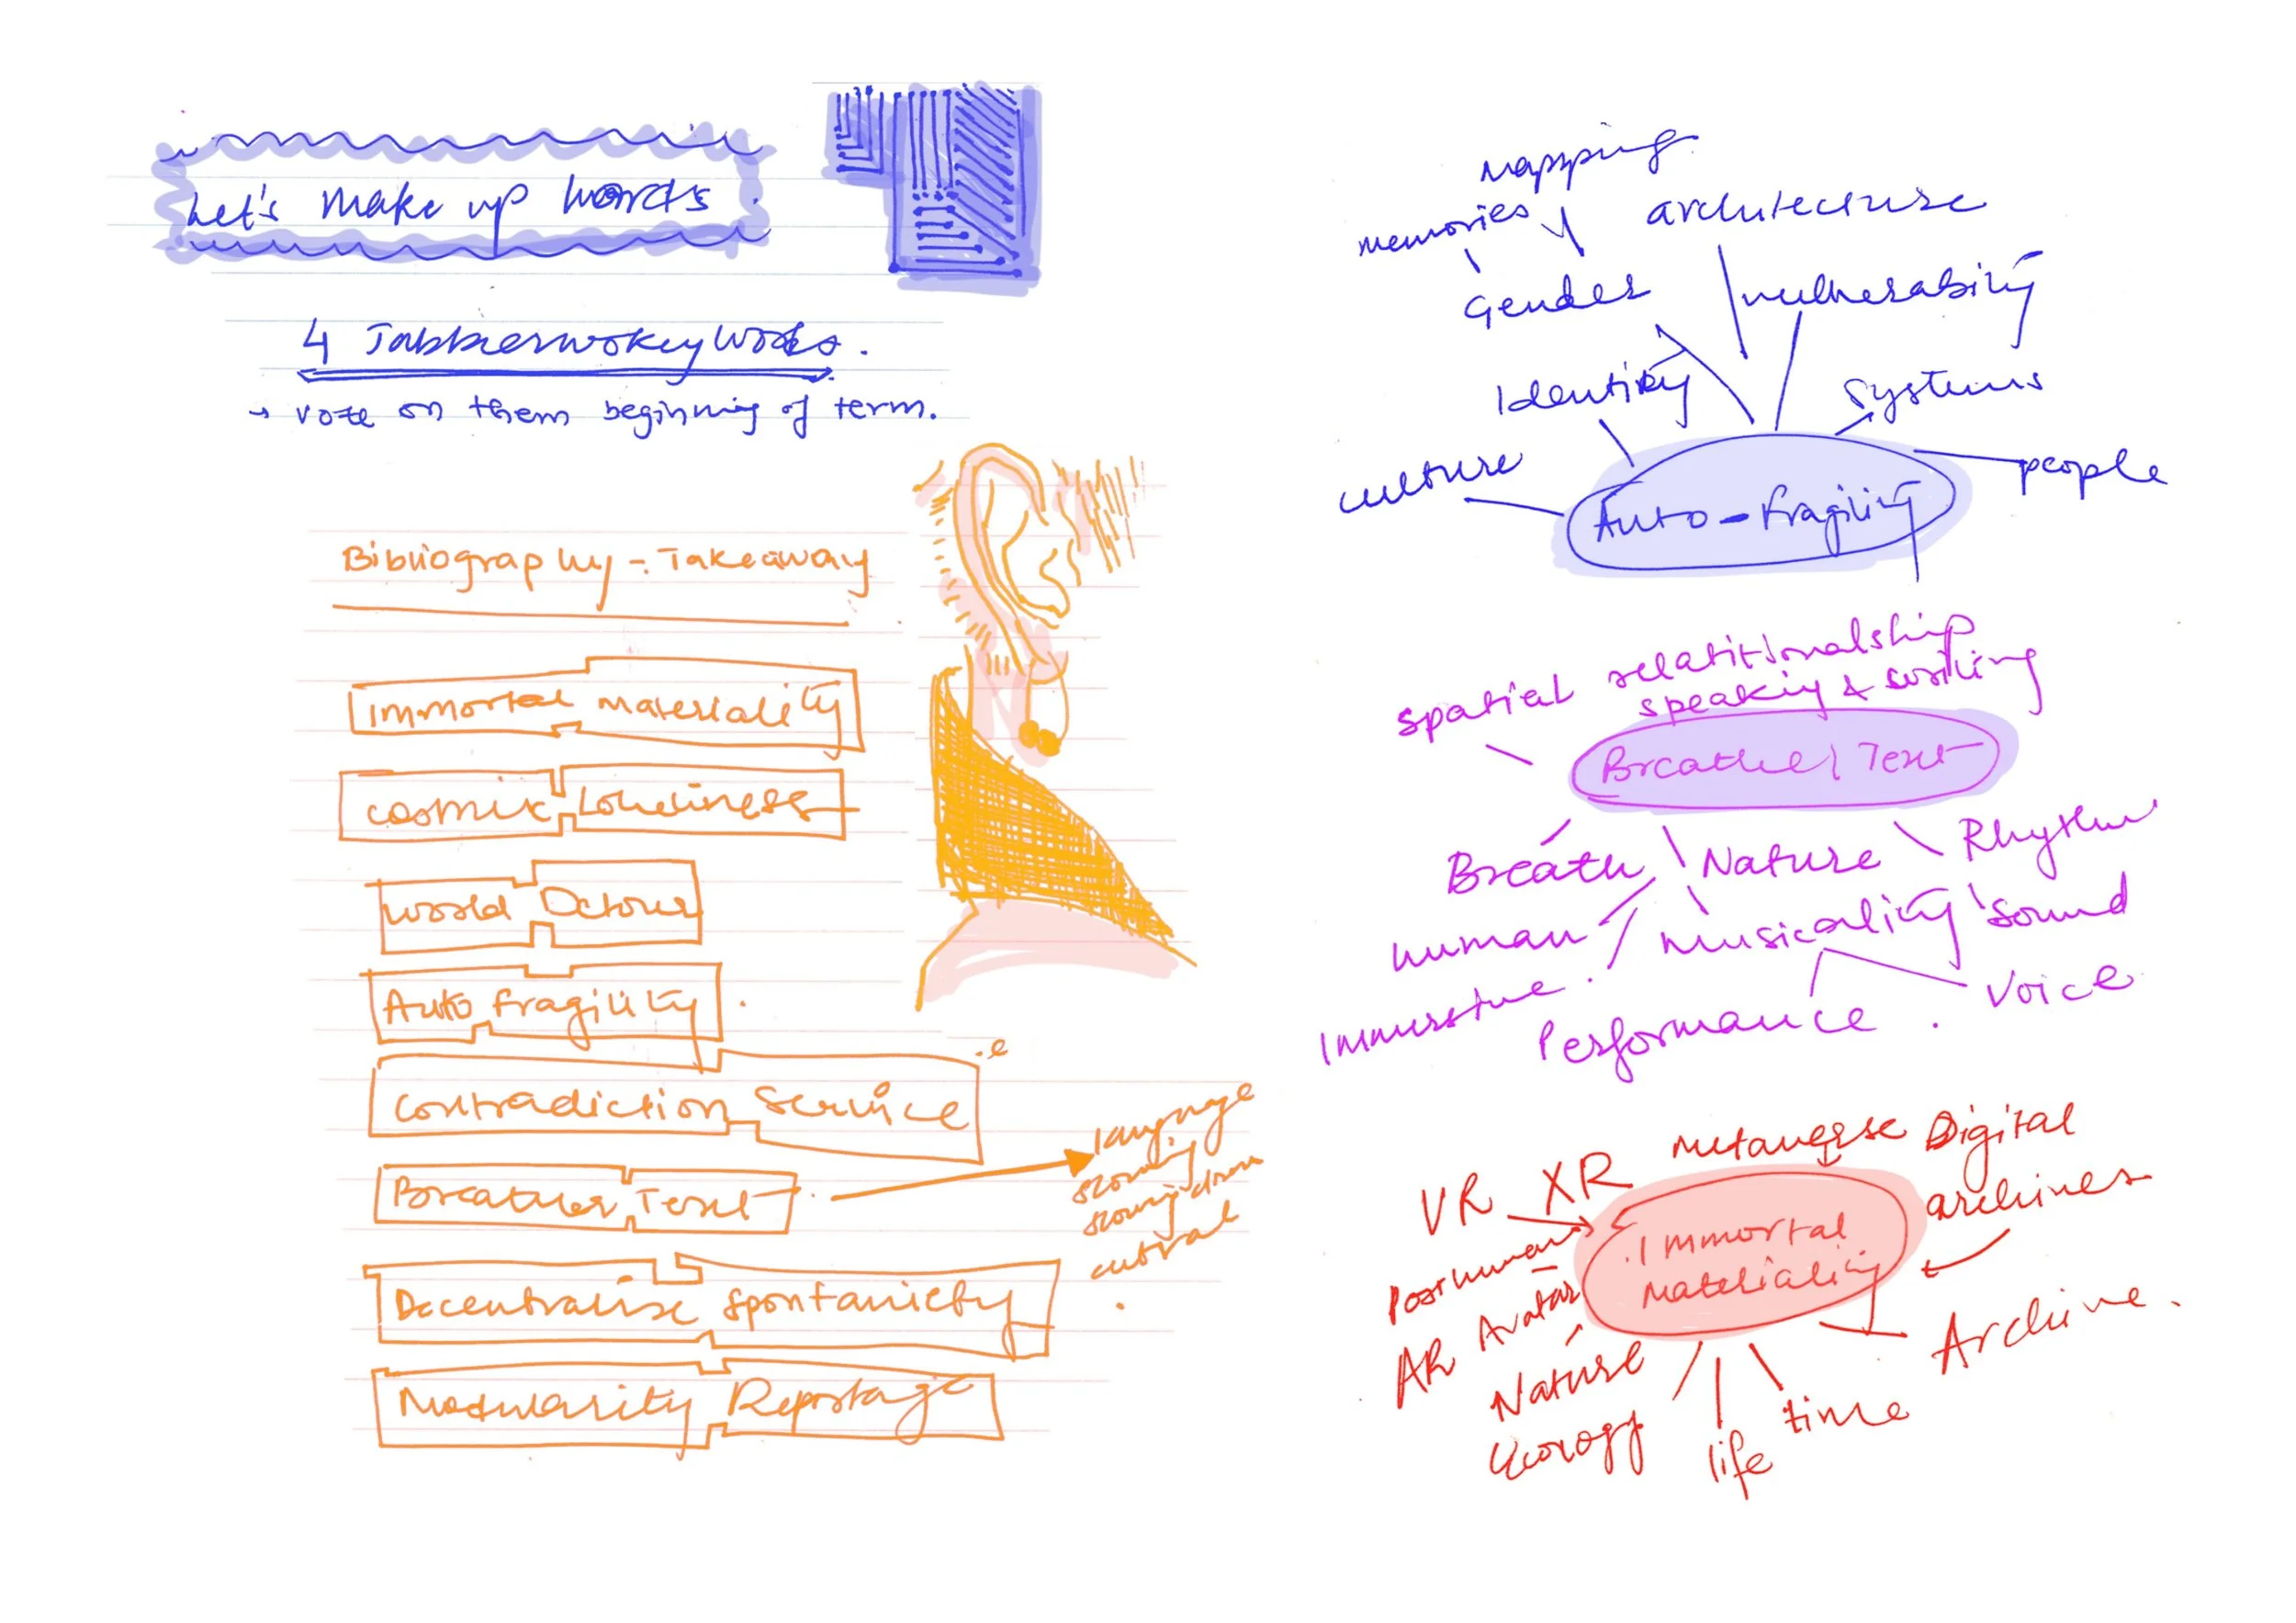 Let's make up words.
4 Jabberwokey words.
→ vote on them beginning of term.
Bibliography - Takeaway
Immortal materiality
cosmic Loneliness
World Detour
Auto fragility
Contradiction Service
Breather Text
language
slowing down
Decentralise Spontaniety
Modularity Reportage
mapping
memories
architecture
Gender
vulnerability
Identity
systems
culture
people
Auto-fragility
spatial relatitionalship
speaking & writing
Text
Breath Nature Rhythm
human musicality sound
Immerstive Voice
Performance
metaverse Digital
VR XR archives
Immortal
Materiality
Posthuman
AR Avatar
Archive.
Nature
time
Ecology
life